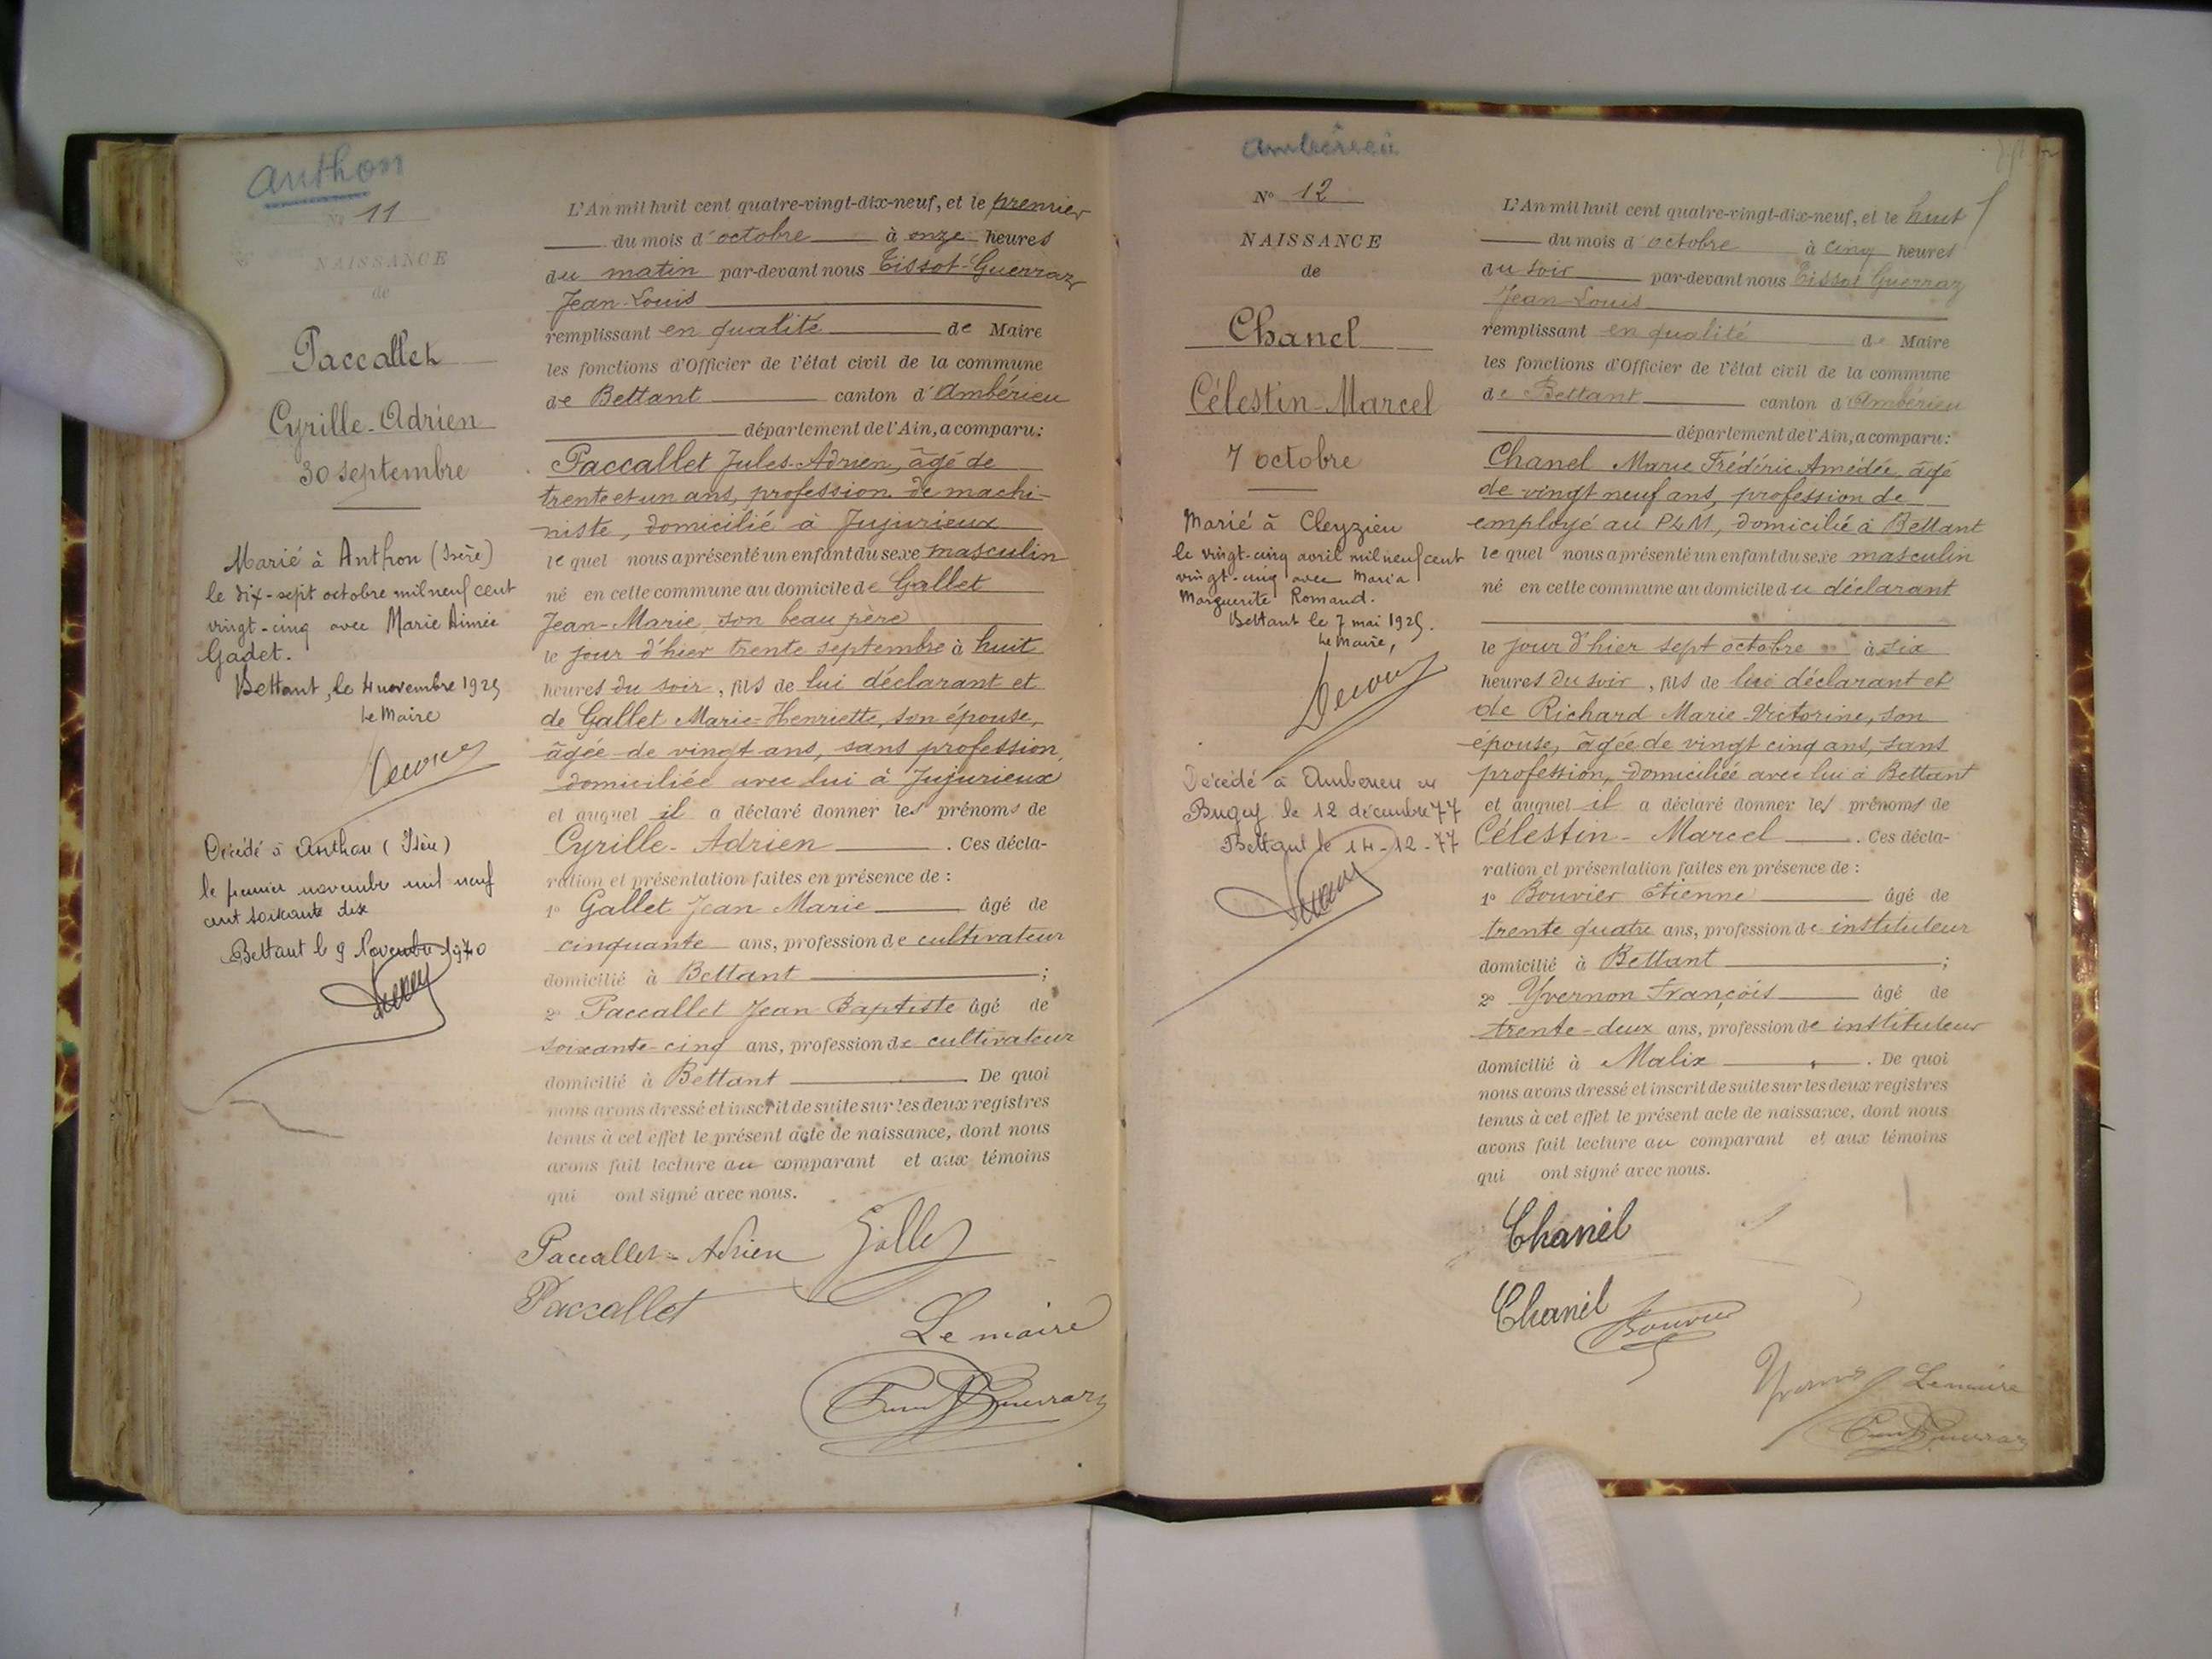 Anthon
N° 11
NAISSANCE
de
Paccallet
Cyrille-Adrien
30 septembre
Marié à Anthon (Isère)
le dix-sept octobre mil neuf cent
vingt-cinq avec Marie Aimée
Gadet.
Bettant, le 4 novembre 1925
Le Maire
Décédé à Anthon (Isère)
le premier novembre mil neuf
cent soixante dix
Bettant le 9 Novembre 1970
L'An mil huit cent quatre-vingt-dix-neuf, et le premier
du mois d'octobre à onze heures
du matin par-devant nous Tissot-Guerraz
Jean-Louis
remplissant en qualité de Maire
les fonctions d'Officier de l'état civil de la commune
de Bettant canton d'Ambérieu
département de l'Ain, a comparu:
Paccallet Jules-Adrien, âgé de
trente et un ans, profession de machi-
niste, domicilié à Jujurieux
lequel nous a présenté un enfant du sexe masculin
né en cette commune au domicile de Gallet
Jean-Marie, son beau père
le jour d'hier trente septembre à huit
heures du soir, fils de lui déclarant et
de Gallet Marie-Henriette, son épouse,
âgée de vingt ans, sans profession,
domiciliée avec lui à Jujurieux
et auquel il a déclaré donner les prénoms de
Cyrille-Adrien. Ces décla-
ration et présentation faites en présence de :
1° Gallet Jean Marie âgé de
cinquante ans, profession de cultivateur
domicilié à Bettant ;
2° Paccallet Jean Baptiste âgé de
soixante-cinq ans, profession de cultivateur
domicilié à Bettant De quoi
nous avons dressé et inscrit de suite sur les deux registres
tenus à cet effet le présent acte de naissance, dont nous
avons fait lecture au comparant et aux témoins
qui ont signé avec nous.
Paccallet-Adrien Gallet
Paccallet
Le maire
Guerraz
Ambérieu
N° 12
NAISSANCE
de
Chanel
Célestin-Marcel
7 octobre
Marié à Cleyzieu
le vingt-cinq avril mil neuf cent
vingt-cinq avec Maria
Marguerite Romand.
Bettant le 7 mai 1925.
Le Maire,
Décédé à Amberieu en
Bugey le 12 décembre 77
Bettant le 14-12-77
L'An mil huit cent quatre-vingt-dix-neuf, et le huit
du mois d'octobre à cinq heures
du soir par-devant nous Tissot Guerraz
Jean-Louis
remplissant en qualité de Maire
les fonctions d'Officier de l'état civil de la commune
de Bettant canton d'Ambérieu
département de l'Ain, a comparu:
Chanel Marie Frédéric Amédée, âgé
de vingt neuf ans, profession de
employé au PLM, domicilié à Bettant
lequel nous a présenté un enfant du sexe masculin
né en cette commune au domicile du déclarant
le jour d'hier sept octobre à six
heures du soir, fils de lui déclarant et
de Richard Marie Victorine, son
épouse, âgée de vingt cinq ans, sans
profession, domiciliée avec lui à Bettant
et auquel il a déclaré donner les prénoms de
Célestin-Marcel. Ces décla-
ration et présentation faites en présence de :
1° Bouvier Etienne âgé de
trente quatre ans, profession de instituteur
domicilié à Bettant ;
2° Yvernon François âgé de
trente-deux ans, profession de instituteur
domicilié à Malix. De quoi
nous avons dressé et inscrit de suite sur les deux registres
tenus à cet effet le présent acte de naissance, dont nous
avons fait lecture au comparant et aux témoins
qui ont signé avec nous.
Chanel
Chanel Bouvier
Le maire
Guerraz